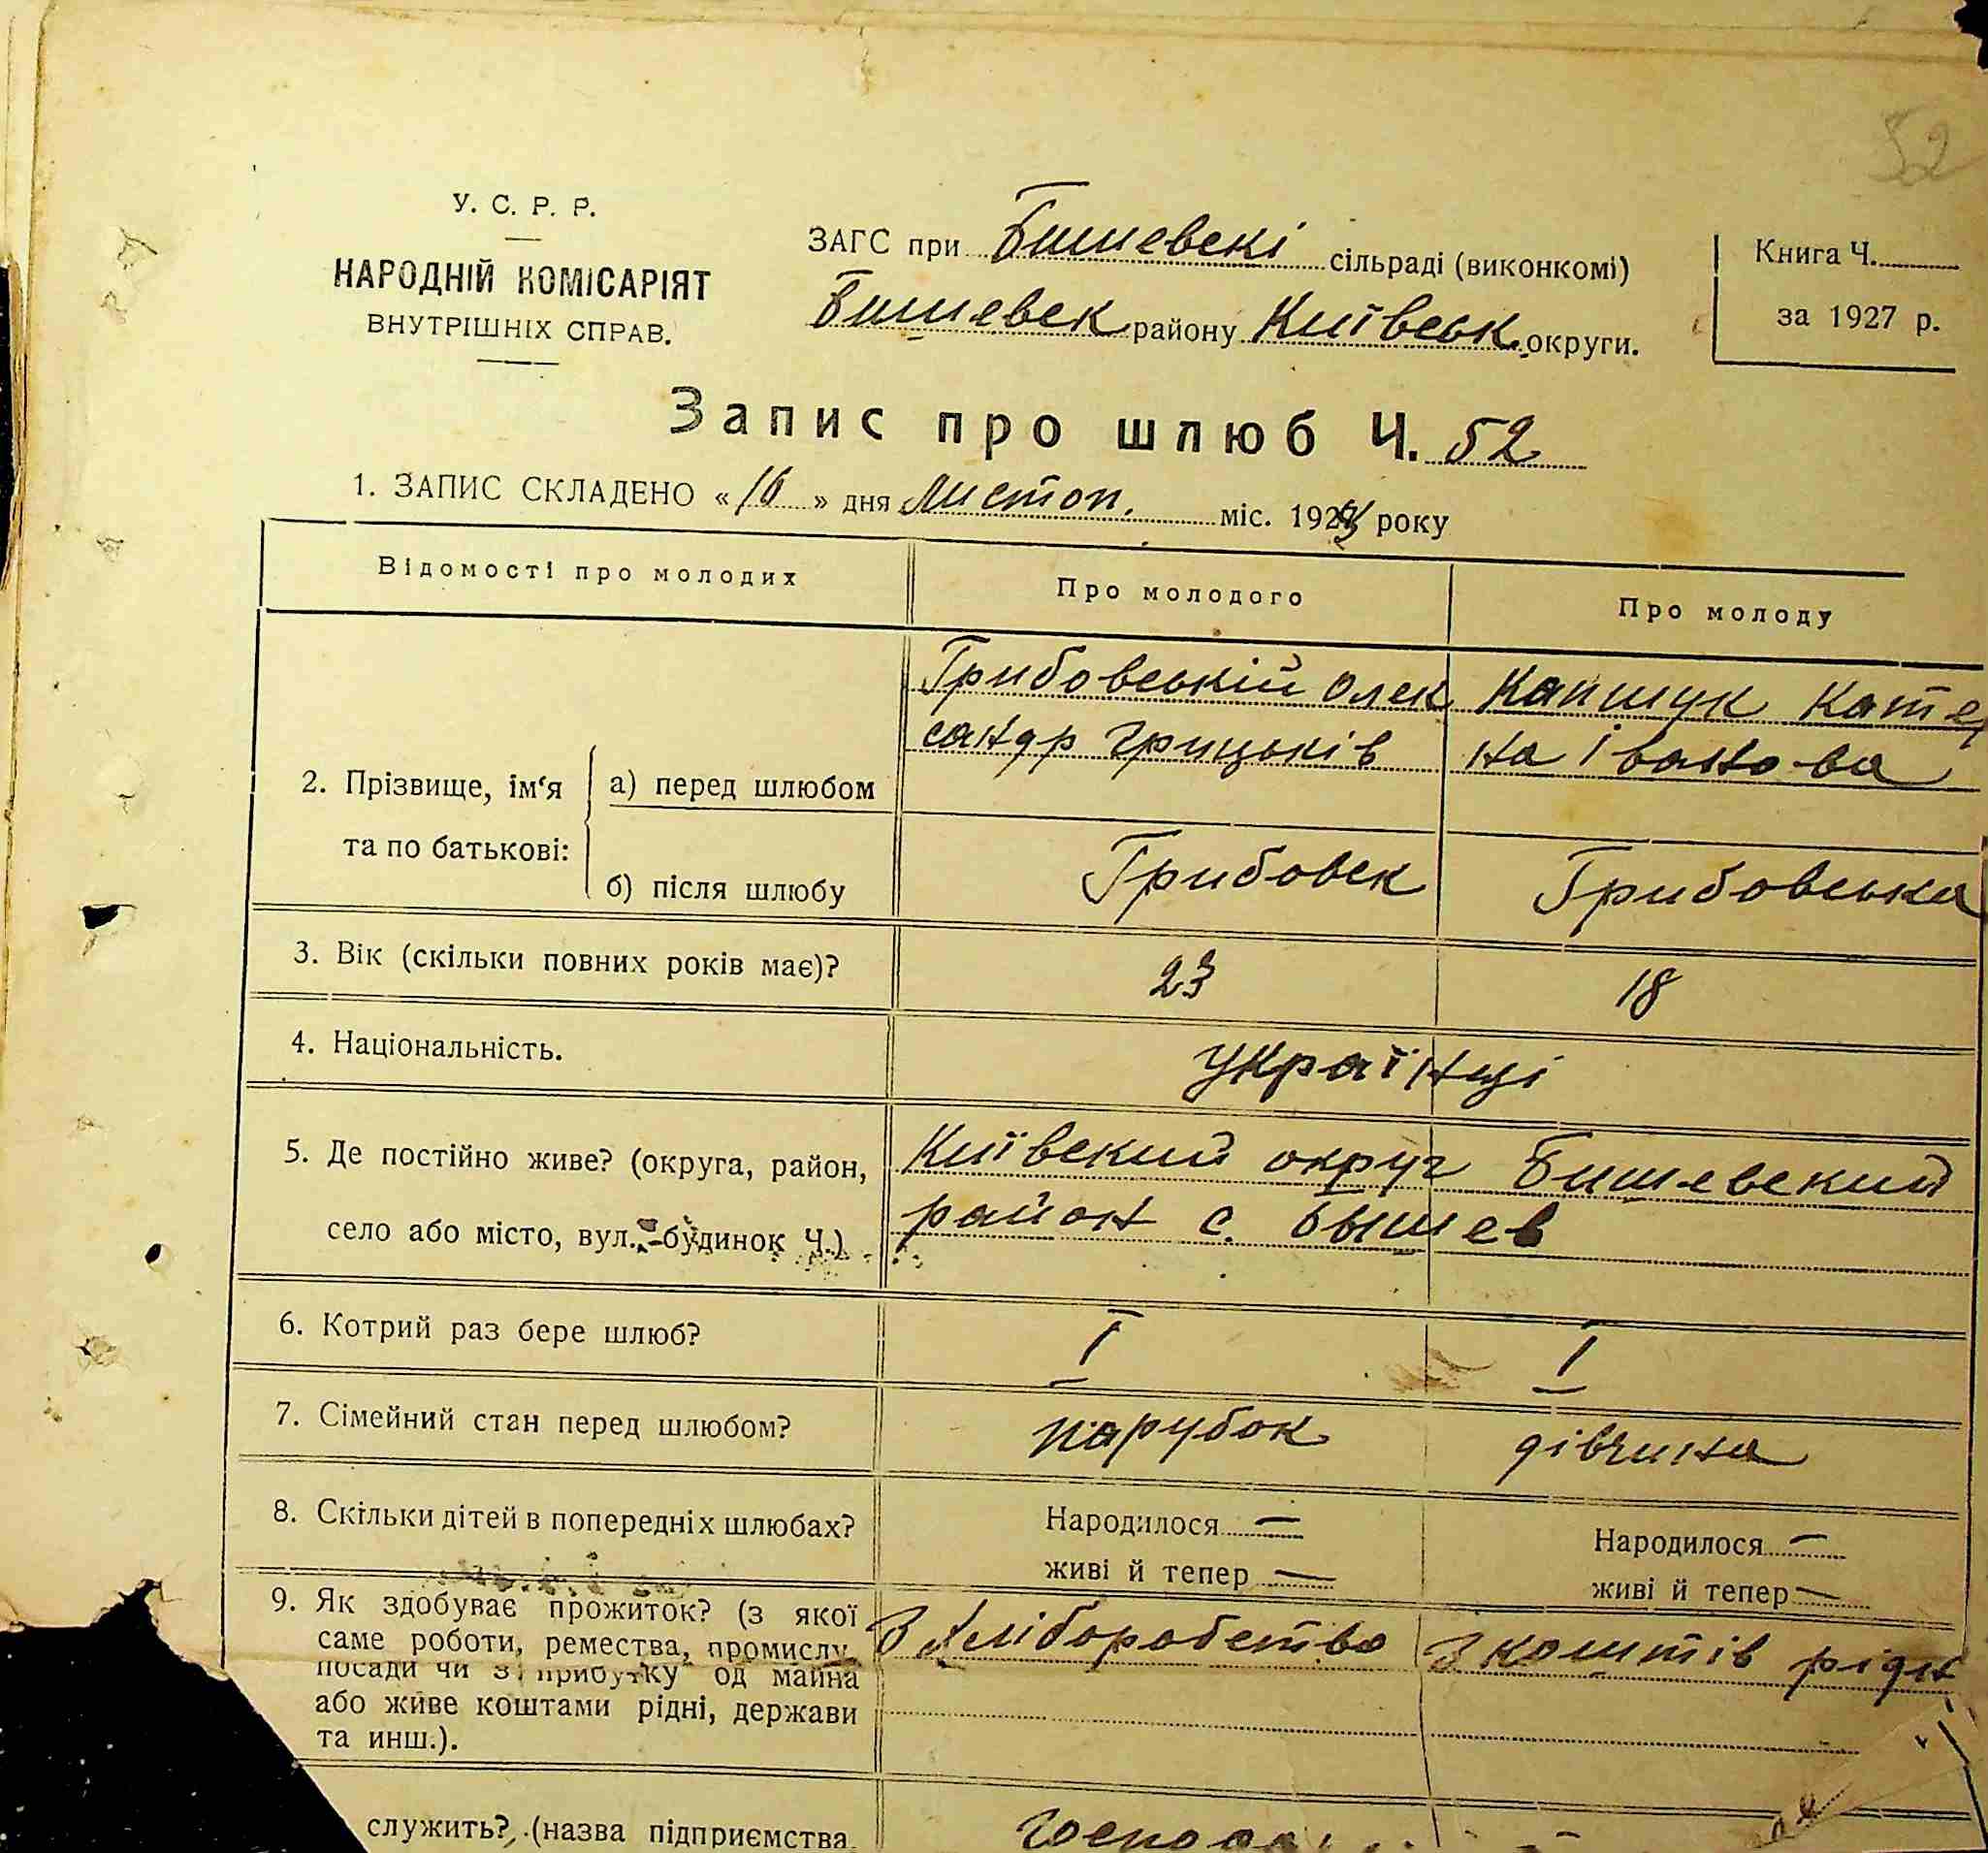 52
У. С. Р. Р.
НАРОДНІЙ КОМІСАРІЯТ
ВНУТРІШНІХ СПРАВ.
ЗАГС при Бишевскі сільраді (виконкомі)
Бишевск району Київськ. округи.
Книга Ч.
за 1927 р.
Запис про шлюб Ч. 52
1. ЗАПИС СКЛАДЕНО «16» дня листоп. міс. 192 року
Відомості про молодих
Про молодого
Про молоду
2. Прізвище, ім‘я та по батькові:
а) перед шлюбом
Грибовській Олек
сандр Грицьків
Капшук Кате
на Іванова
б) після шлюбу
Грибовск
Грибовська
3. Вік (скільки повних років має)?
23
18
4. Національність.
українці
5. Де постійно живе? (округа, район,
село або місто, вул., будинок Ч.)
Київский округ Бишевский
район с. Бышев
6. Котрий раз бере шлюб?
I
I
7. Сімейний стан перед шлюбом?
парубок
дівчина
8. Скільки дітей в попередніх шлюбах?
Народилося —
живі й тепер —
Народилося —
живі й тепер —
9. Як здобуває прожиток? (з якої
саме роботи, ремества, промислу,
посади чи з прибутку од майна
або живе коштами рідні, держави
та инш.).
З хліборобство
З коштів рідн
служить? (назва підприємства,